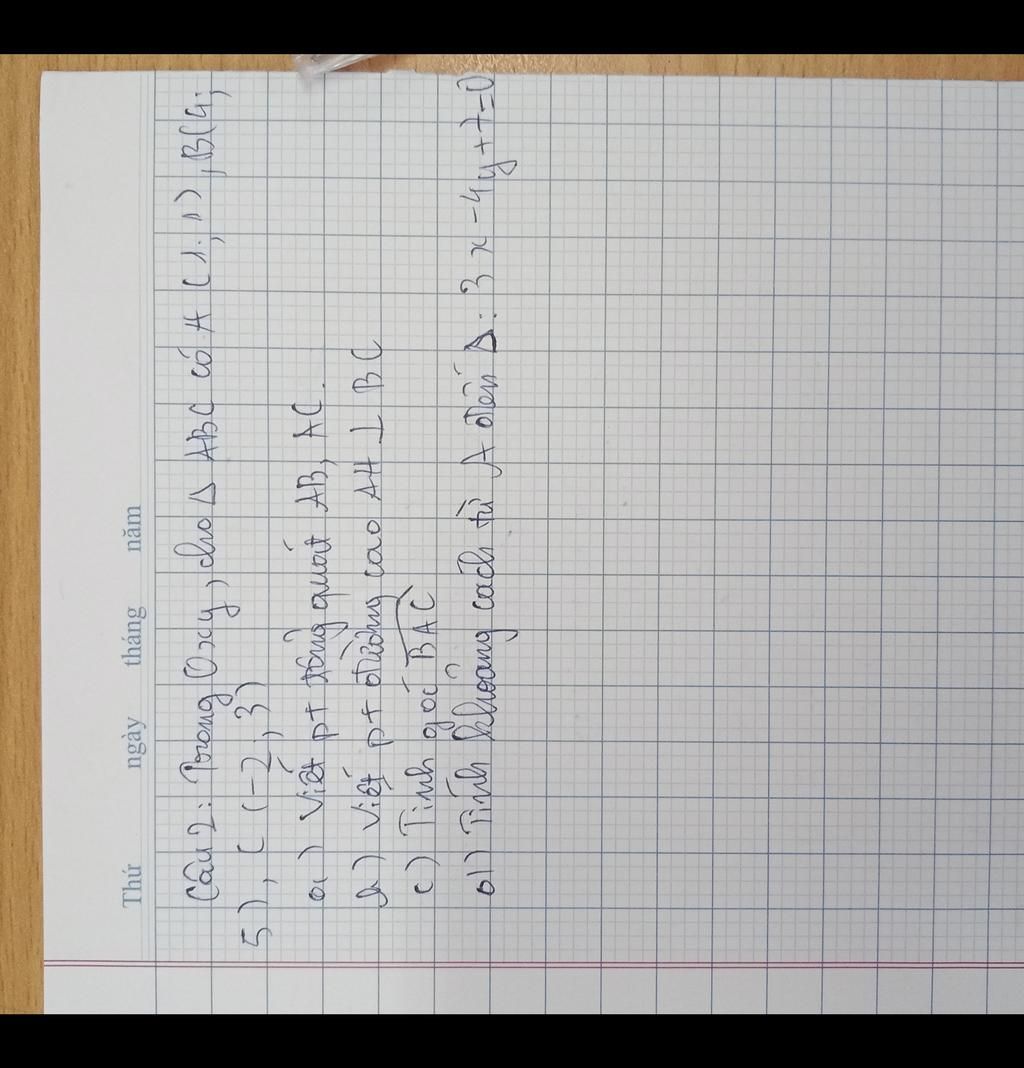 Thứ ngày tháng năm
Câu 2: Trong Oxy, cho Δ ABC có A (1; 1), B(4;
5), C (-2; 3)
a) Viết pt tổng quát AB, AC.
b) Viết pt đường cao AH ⊥ BC
c) Tính góc BAC
d) Tính khoảng cách từ A đến Δ: 3x - 4y + 7 = 0